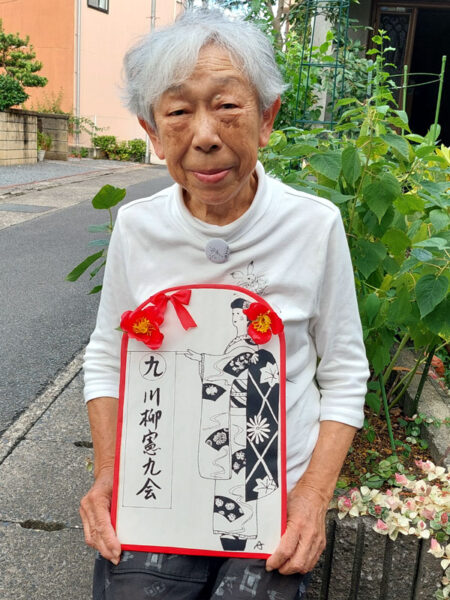 九 川柳憲九会